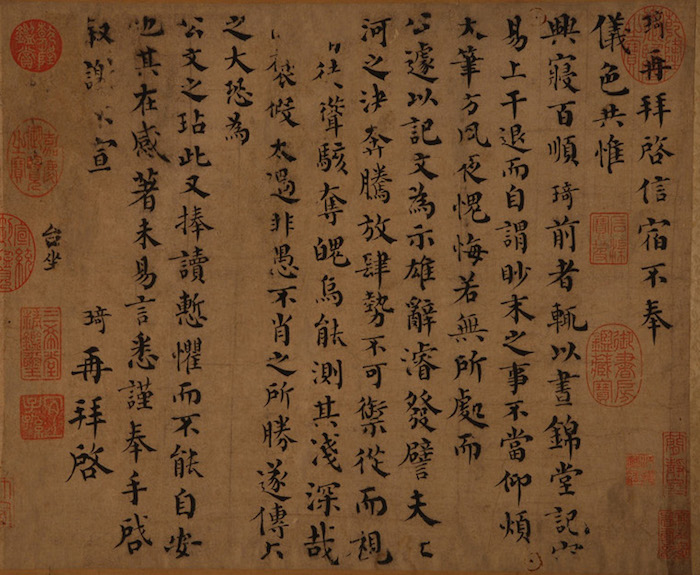 琦再拜啓信宿不奉
儀色共惟
興寢百順琦前者輒以晝錦堂記容
易上干退而自謂眇末之事不當仰煩
大筆方夙夜愧悔若無所處而
公遽以記文為示雄辭濬發譬夫
河之決奔騰放肆勢不可禦從而視
徒聳駭奪魄烏能測其淺深哉
褒假太過非愚不肖之所勝遂傳
之大恐為
公文之玷此又捧讀慙懼而不能自安
也其在感著未易言悉謹奉手啓
叙謝不宣 琦再拜啓
台坐